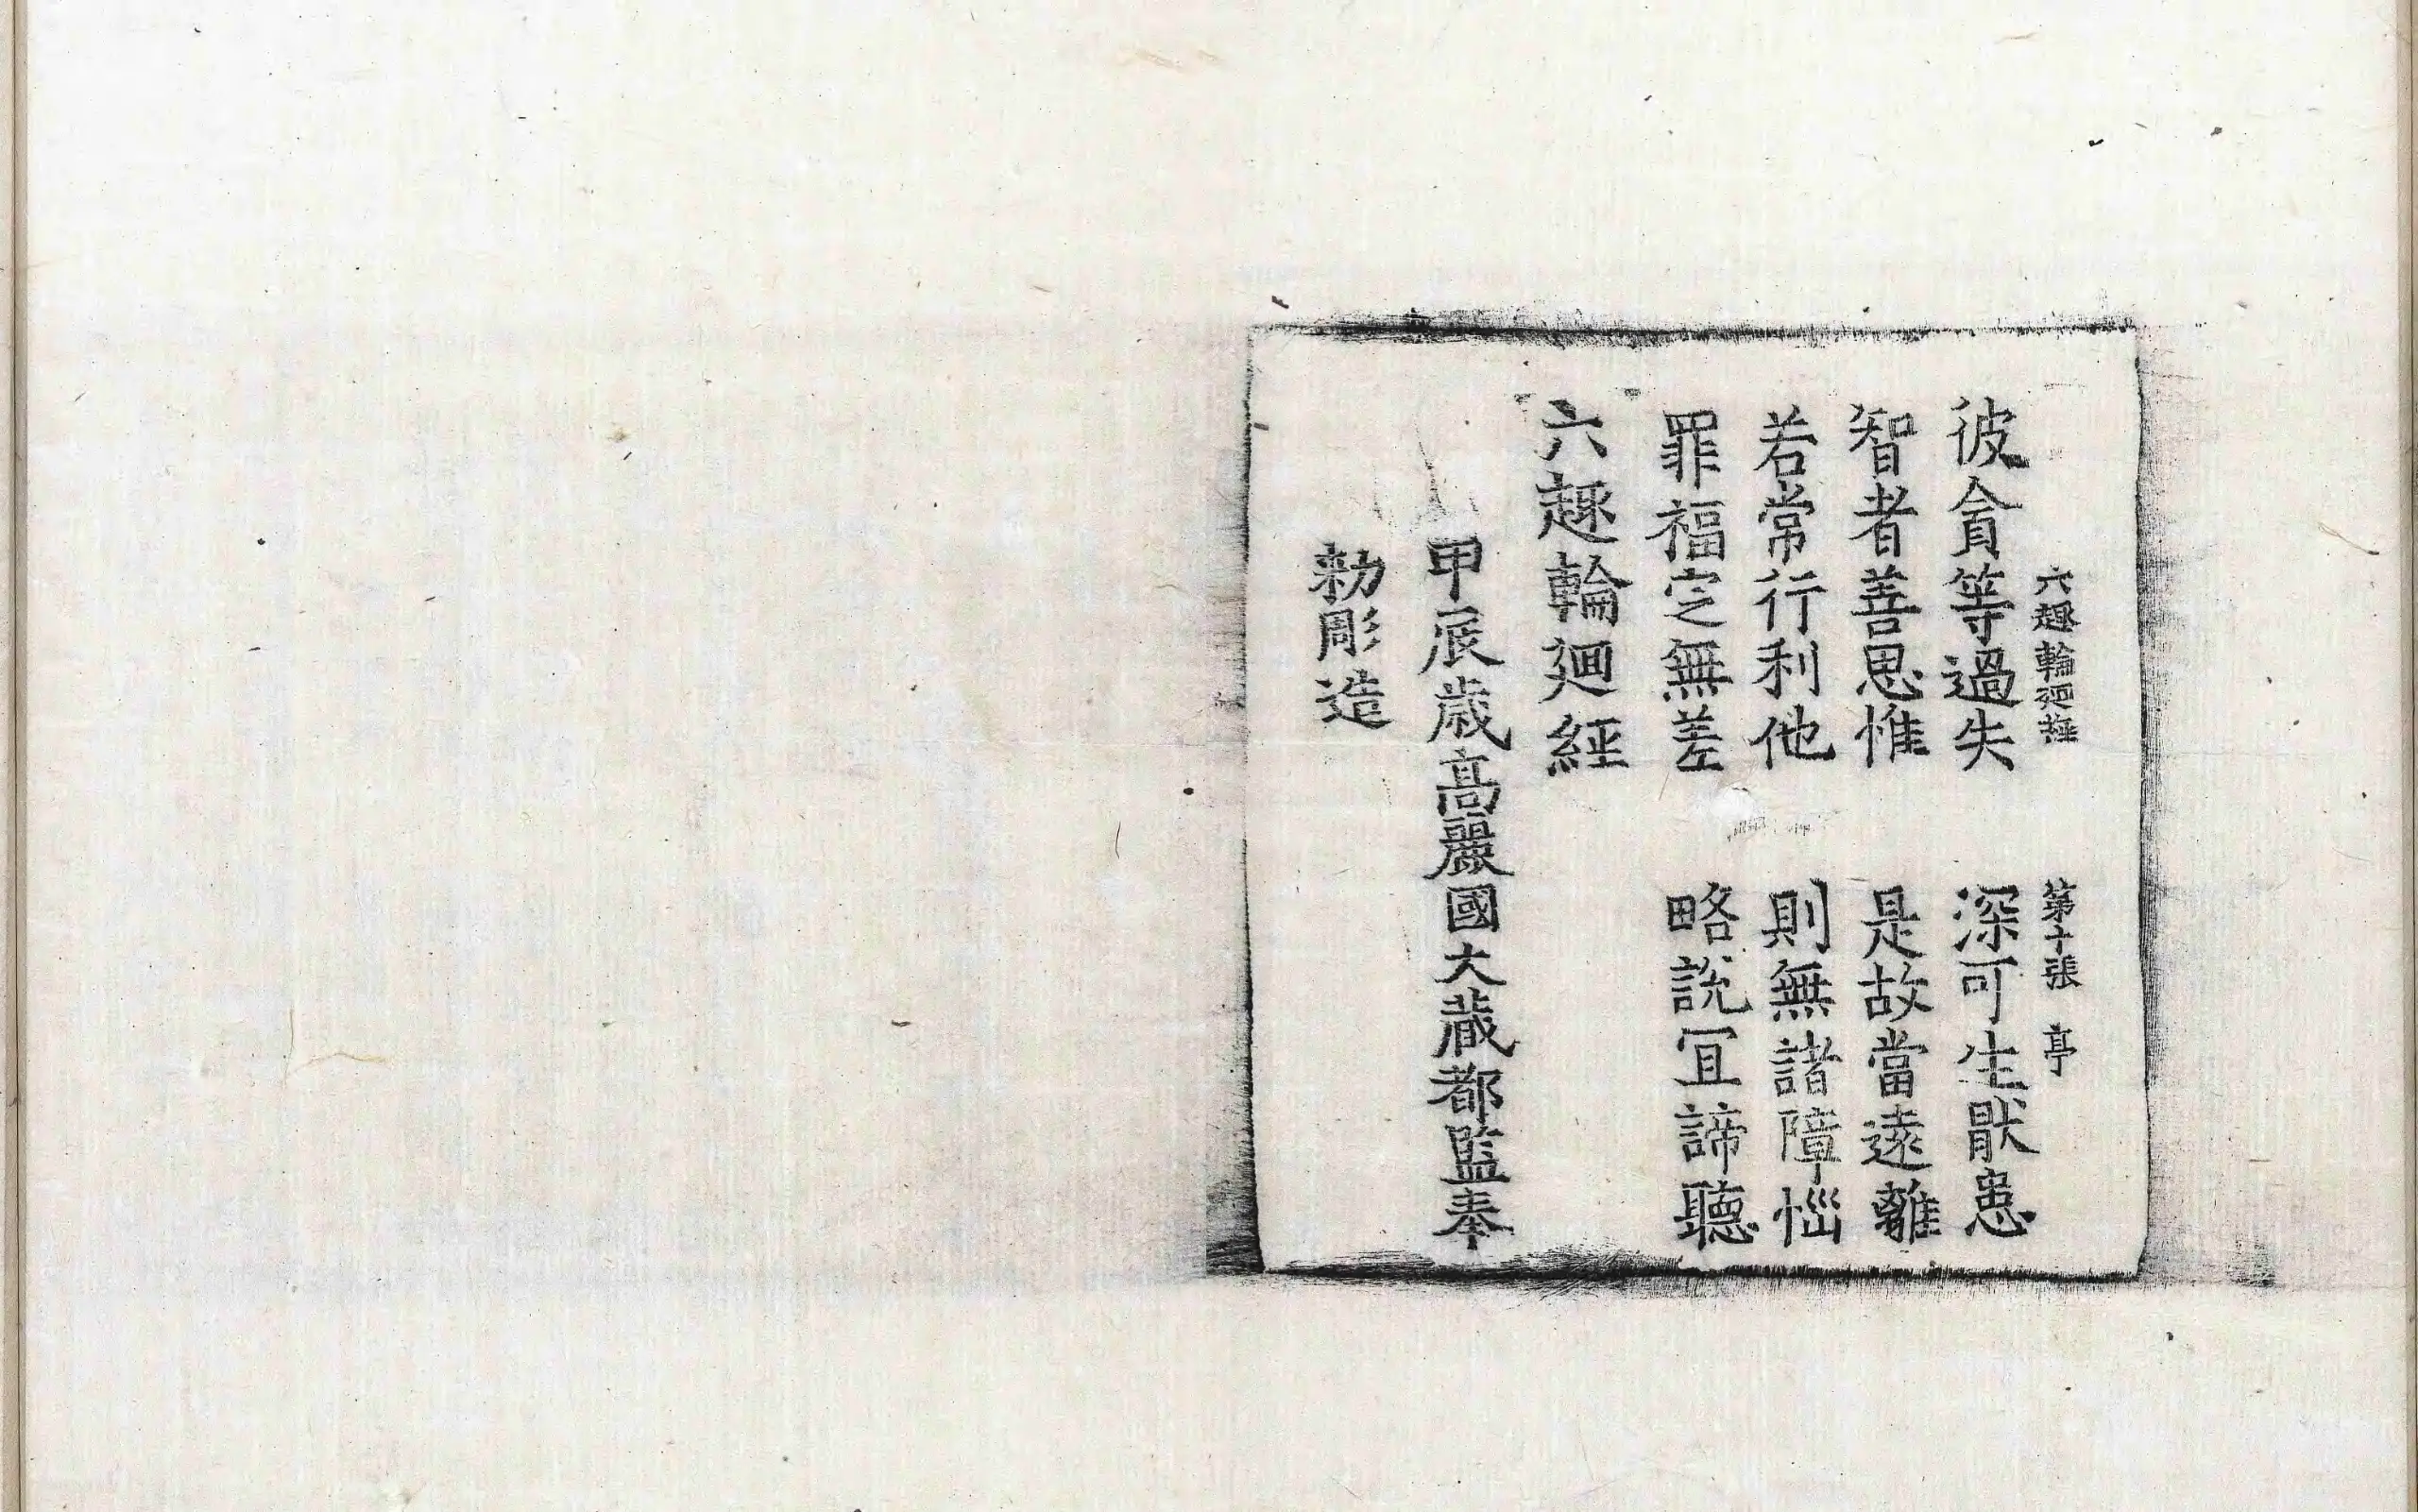 六趣輪廻經 第十張 亭
彼貪等過失 深可生猒患
智者善思惟 是故當遠離
若常行利他 則無諸障惱
罪福定無差 略說冝諦聽
六趣輪廻經
甲辰歲高麗國大藏都監奉
勑彫造